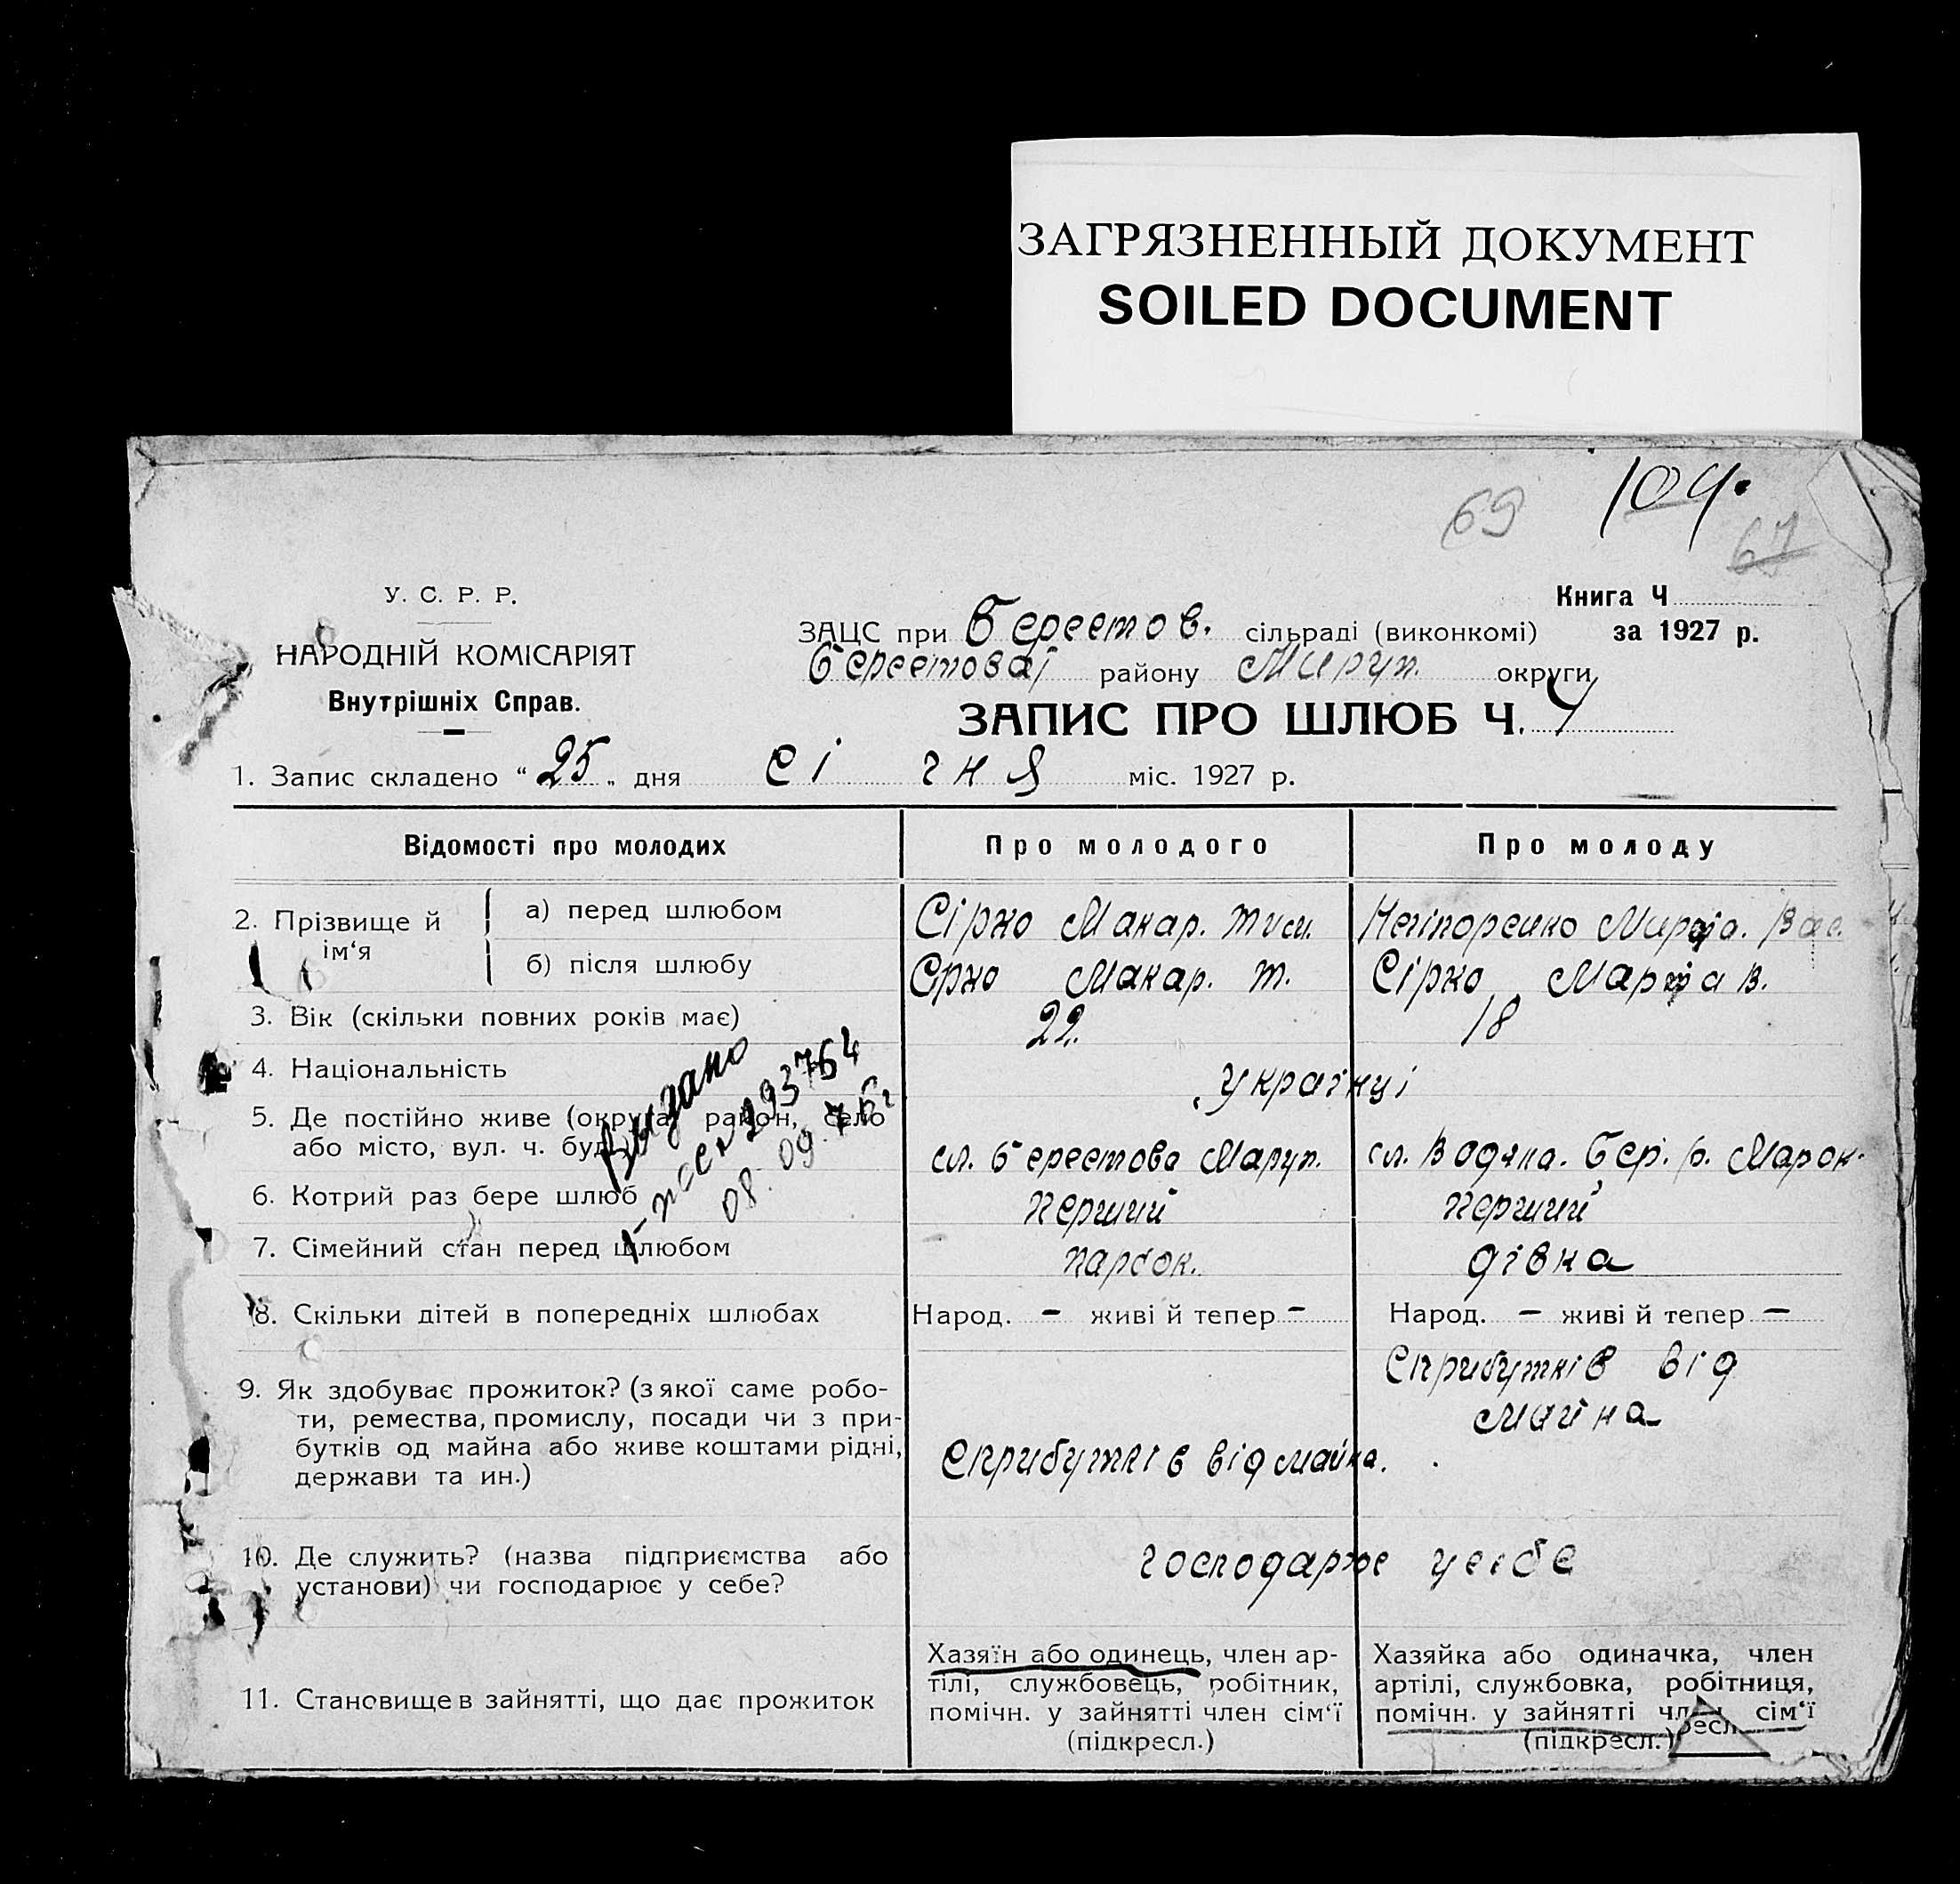 ЗАГРЯЗНЕННЫЙ ДОКУМЕНТ
SOILED DOCUMENT
104.
69
67
У. С. Р. Р.
НАРОДНІЙ КОМІСАРІЯТ
Внутрішніх Справ.
Книга Ч
за 1927 р.
ЗАЦС при Берестов. сільраді (виконкомі)
Берестовај району Маруп. округи
ЗАПИС ПРО ШЛЮБ Ч. 4
1. Запис складено “ 25 „ дня січня міс. 1927 р.
Відомості про молодих Про молодого Про молоду
2. Прізвище й ім‘я
а) перед шлюбом Сірко Макар. Тим. Нестеренко Марфа. Вас.
б) після шлюбу Сірко Макар. Т. Сірко Марфа В.
3. Вік (скільки повних років має) 22. 18
4. Національність українці
5. Де постійно живе (округа, район, село
або місто, вул. ч. буд. сл. Берестова Маруп. сл. Водяна. Бер. р. Марюп.
6. Котрий раз бере шлюб перший перший
7. Сімейний стан перед шлюбом парубок. дівка
Выдано
293764
08.09.76г
8. Скільки дітей в попередніх шлюбах Народ. – живі й тепер – Народ. – живі й тепер –
9. Як здобуває прожиток? (з якої саме робо-
ти, ремества, промислу, посади чи з при-
бутків од майна або живе коштами рідні,
держави та ин.)
Сприбутків від майна.
Сприбутків від
майна
10. Де служить? (назва підприємства або
установи) чи господарює у себе?
господарює усебе
11. Становище в зайнятті, що дає прожиток
Хазяїн або одинець, член ар-
тілі, службовець, робітник,
помічн. у зайнятті член сім‘ї
(підкресл.)
Хазяйка або одиначка, член
артілі, службовка, робітниця,
помічн. у зайнятті член сім‘ї
(підкресл.)